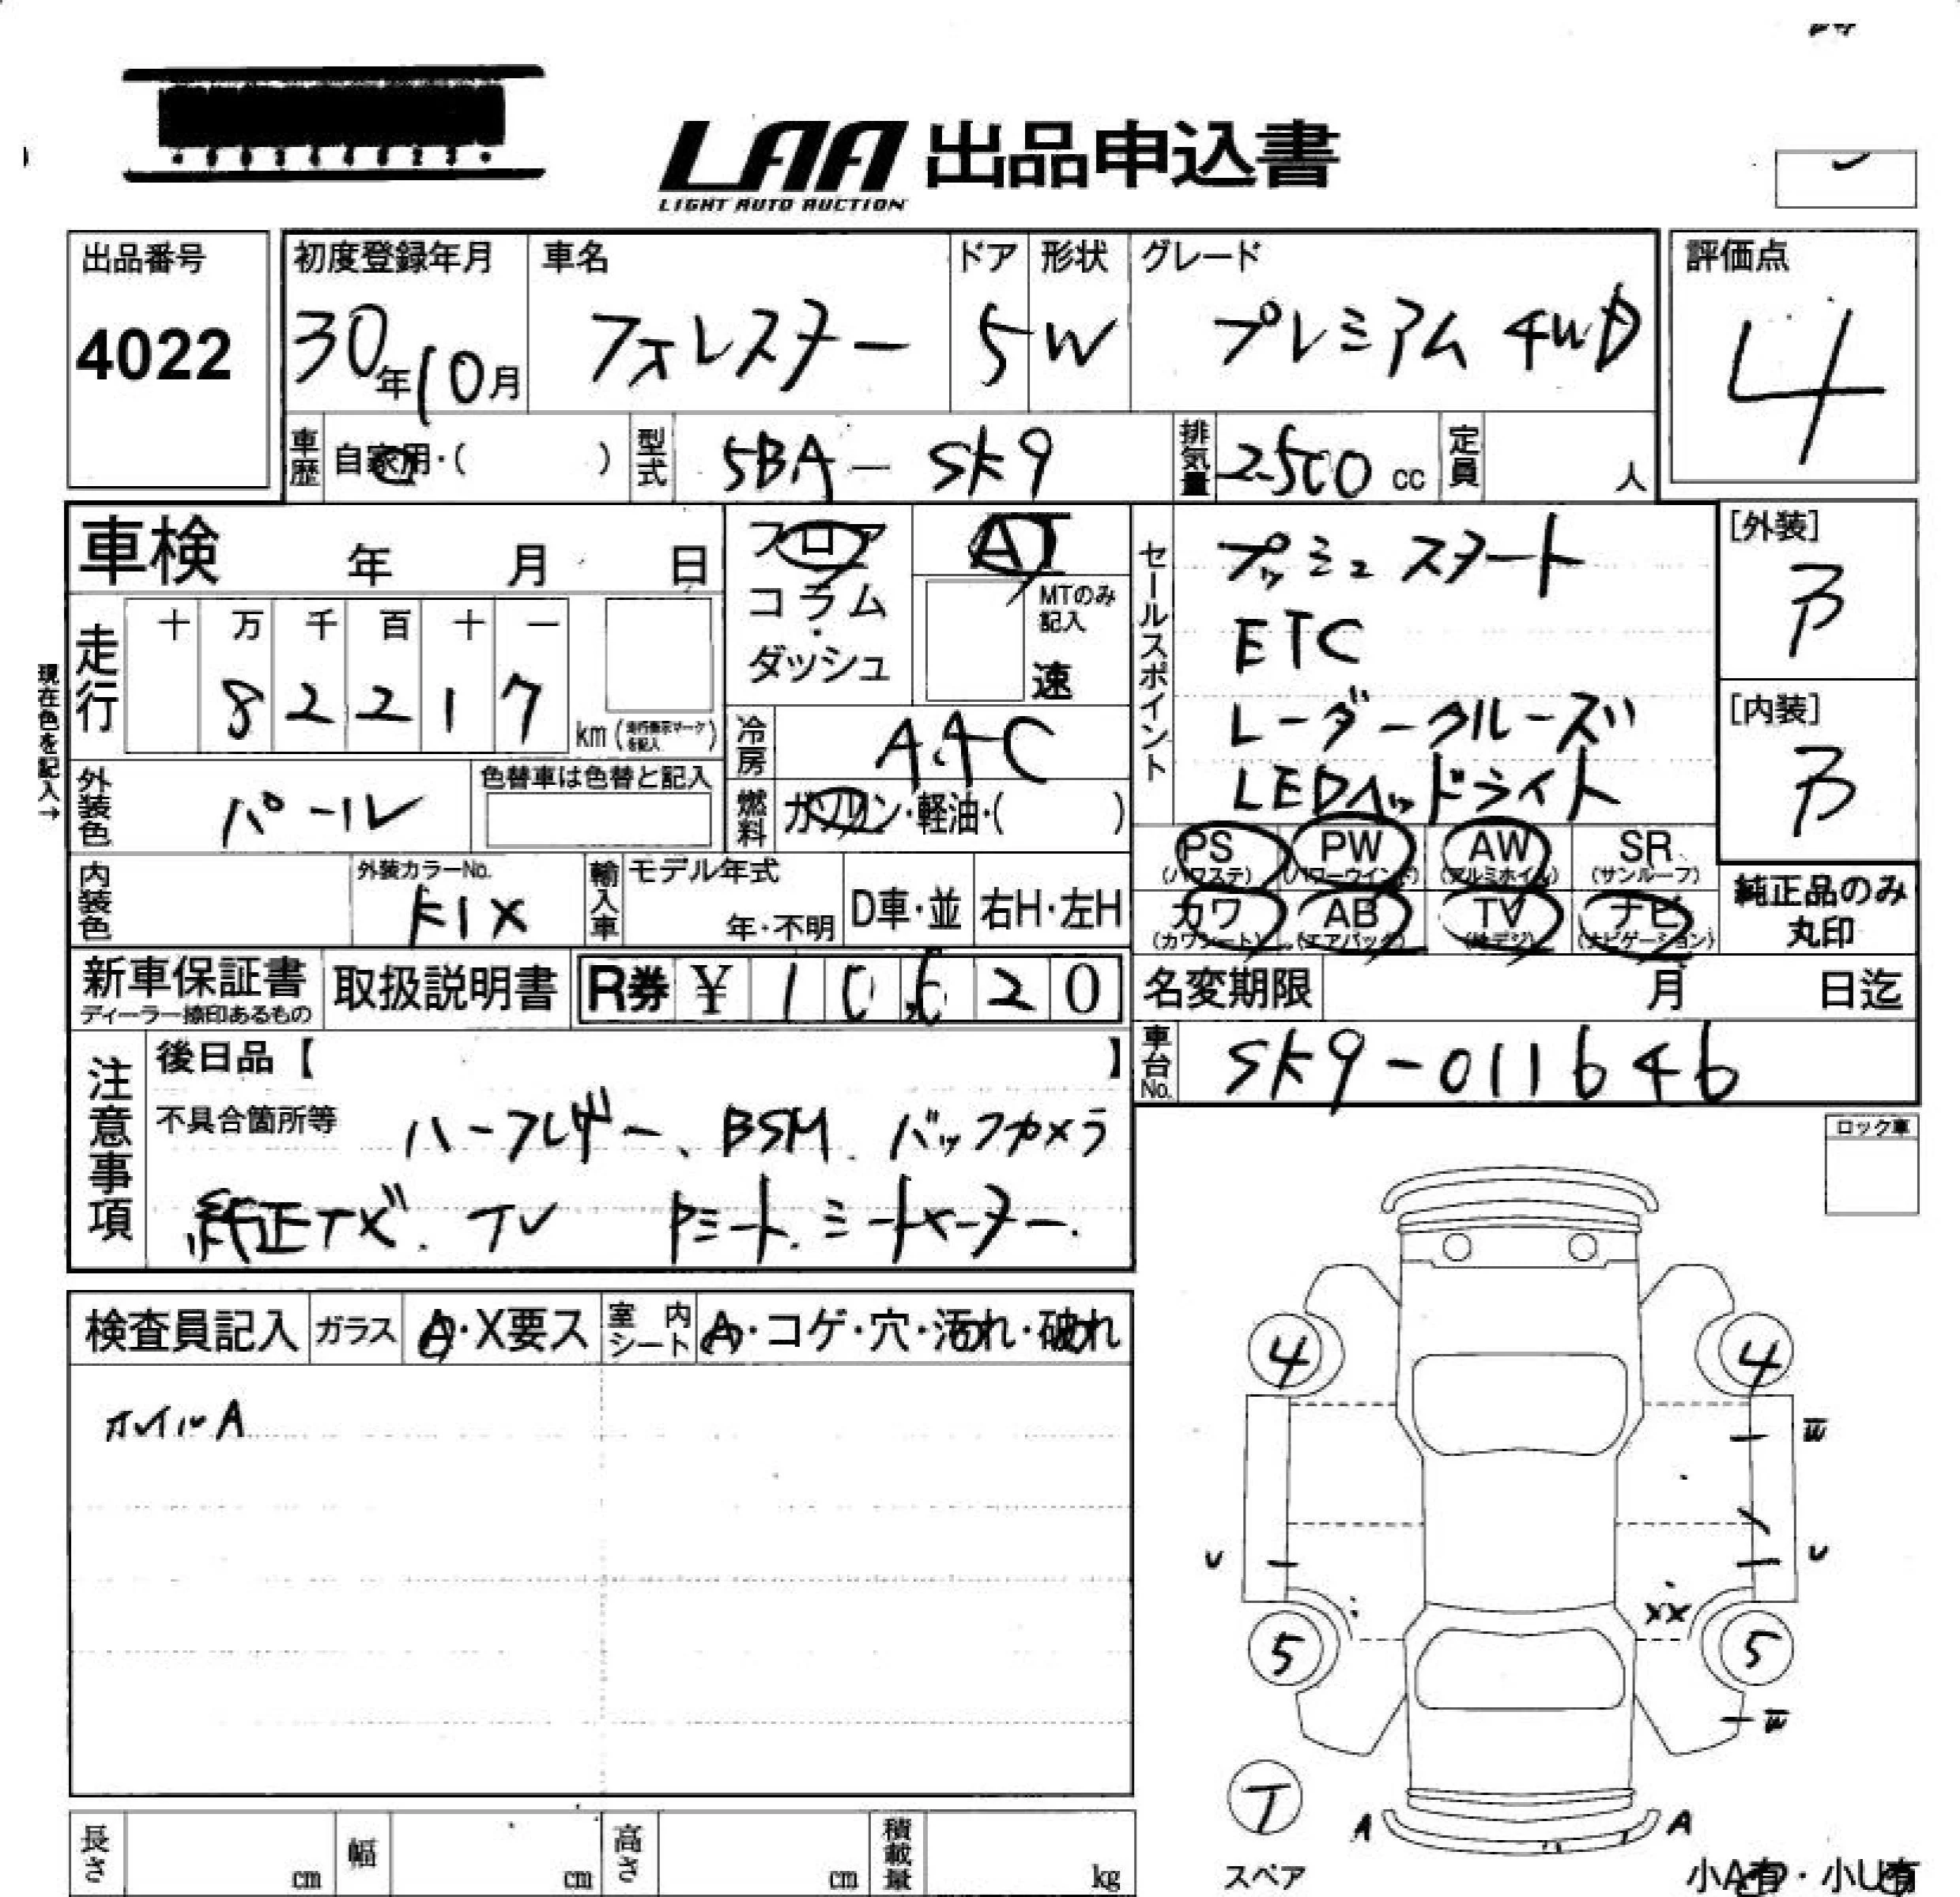 LAA 出品申込書
LIGHT AUTO AUCTION
出品番号
4022
初度登録年月
30年10月
車名
フォレスター
ドア
5
形状
W
グレード
プレミアム 4WD
評価点
4
車歴
自家用・( )
型式
5BA-SK9
排気量
2500 cc
定員
人
車検 年 月 日
フロア
コラム
・
ダッシュ
AT
MTのみ
記入
速
セールスポイント
プッシュスタート
ETC
レーダークルーズ
LEDヘッドライト
[外装]
B
[内装]
B
現在色を記入→
走行
十 万 千 百 十 一
8 2 2 1 7
km(走行表示マークを記入)
冷房
AAC
外装色
パール
色替車は色替と記入
燃料
ガソリン・軽油・( )
PS
(パワステ)
PW
(パワーウインド)
AW
(アルミホイル)
SR
(サンルーフ)
カワ
(カワシート)
AB
(エアバック)
TV
(地デジ)
ナビ
(ナビゲーション)
純正品のみ
丸印
内装色
外装カラーNo.
K1X
輸入車
モデル年式
年・不明
D車・並
右H・左H
新車保証書
ディーラー捺印あるもの
取扱説明書
R券 ¥ 10,620
名変期限 月 日迄
車台No.
SK9-011646
注意事項
後日品【 】
不具合箇所等
ハーフレザー、BSM、バックカメラ
純正ナビ、TV Pシート、シートヒーター、
ロック車
検査員記入
ガラス
A・X要ス
室内シート
A・コゲ・穴・汚れ・破れ
ホイルA
4
4
W
U
U
XX
5
5
W
T
スペア
A
A
小A有・小U有
長さ
cm
幅
cm
高さ
cm
積載量
kg